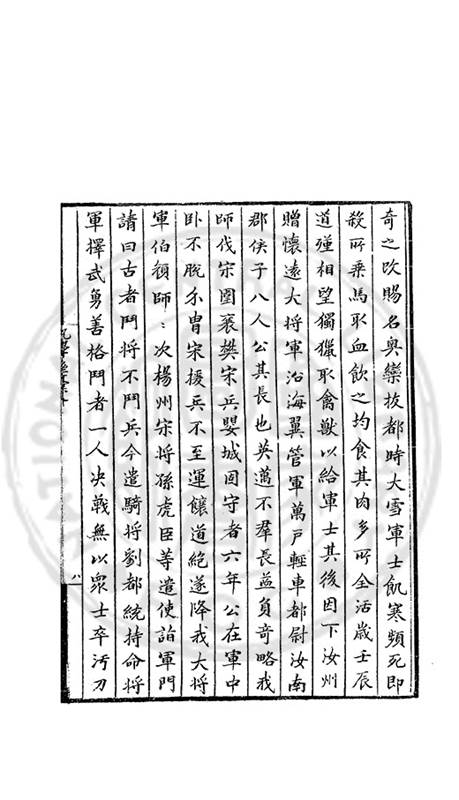 奇之改賜名奥欒拔都時大雪軍士飢寒頻死即
殺所乗馬取血飲之均食其肉多所全活歲壬辰
道殣相望獨獵取禽獸以給軍士其後因下汝州
贈懷遠大將軍沿海翼管軍萬戸輕車都尉汝南
郡侯子八人公其長也英邁不羣長益負奇略我
師伐宋圍襄樊宋兵嬰城固守者六年公在軍中
卧不脫介胄宋援兵不至運饟道絶遂降我大將
軍伯顏師〻次楊州宋將孫虎臣等遣使詣軍門
請曰古者鬥將不鬥兵今遣騎將劉都統持命將
軍擇武勇善格鬥者一人决戰無以衆士卒汚刀
八